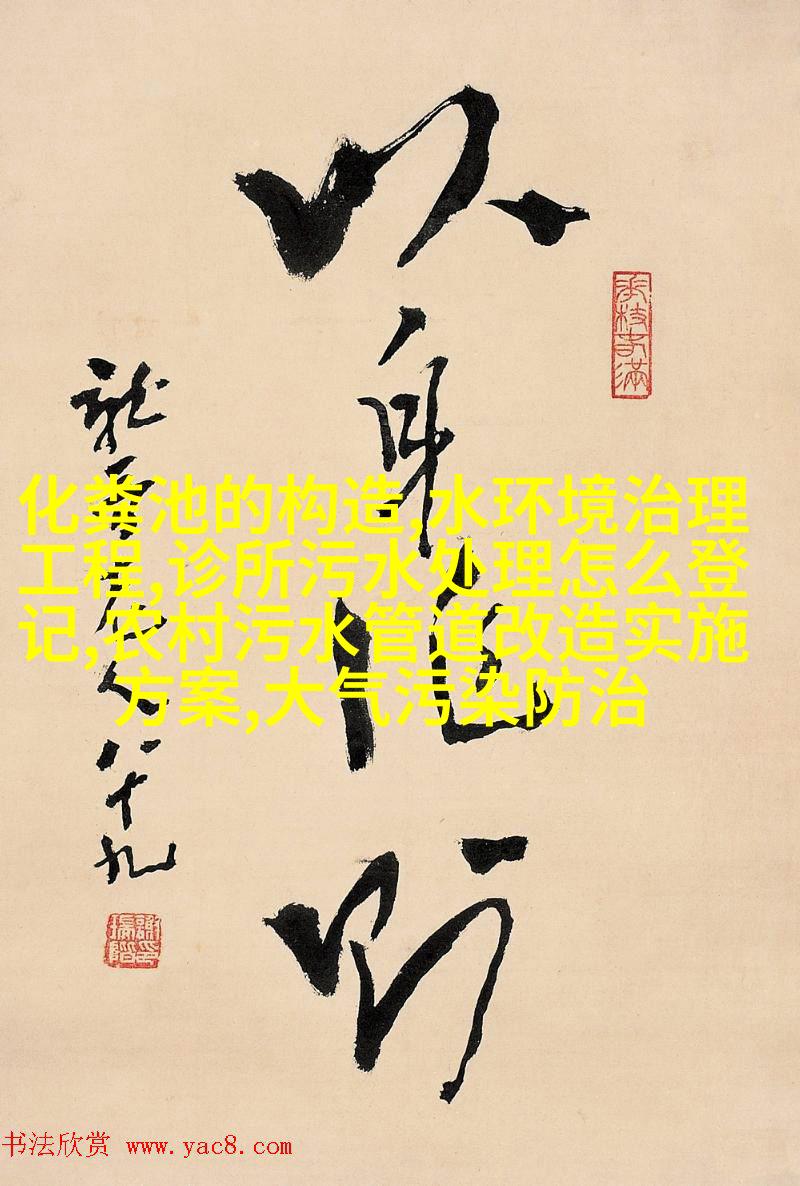 以身作则
龙云老人八十九
化粪池的构造,水环境治理
工程,诊所污水处理怎么登
记,农村污水管道改造实施
方案,大气污染防治
书法欣赏 www.yac8.com